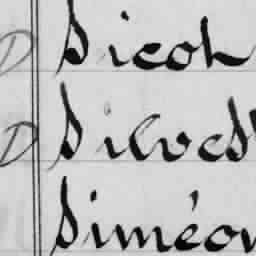 D Sicoh
D Silvest
Siméon